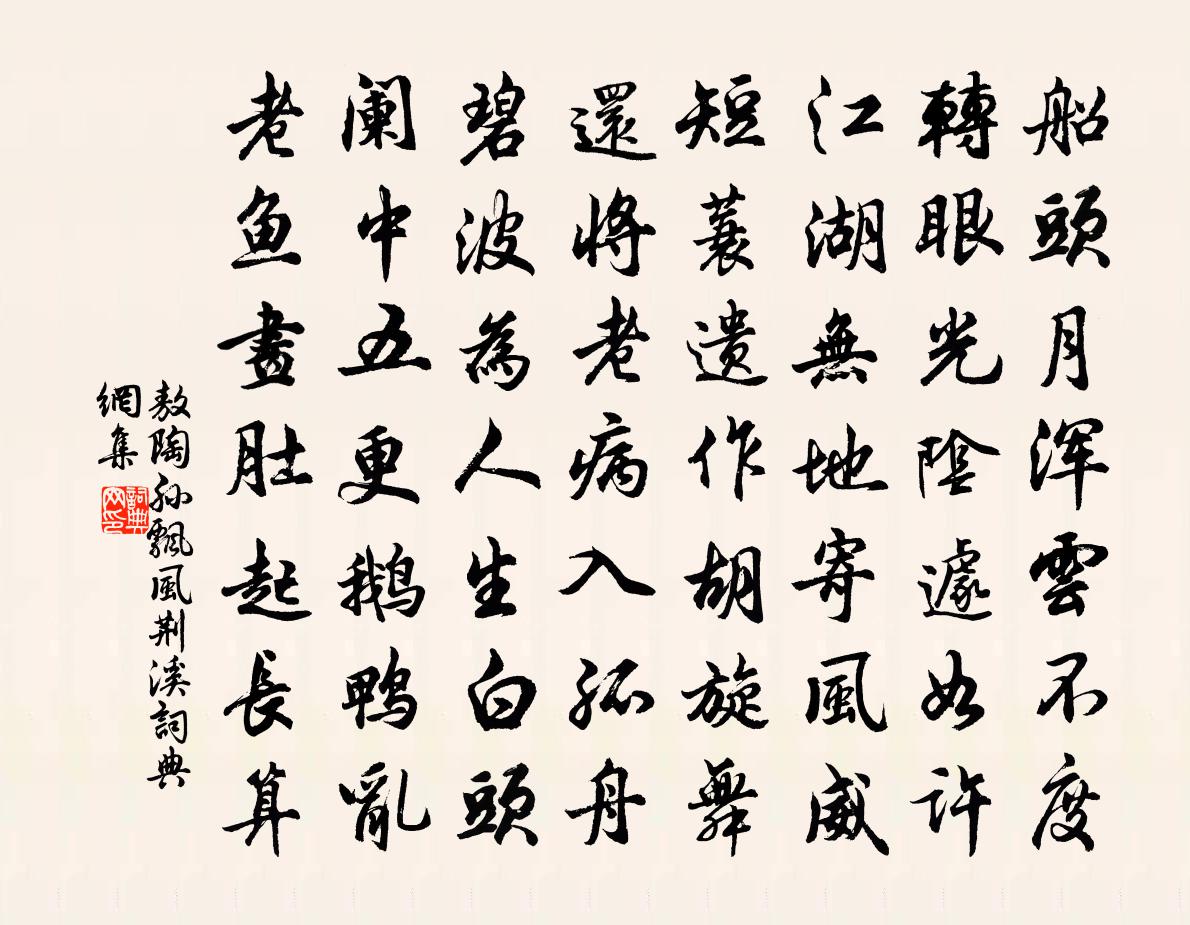 船頭月浑雲不度
轉眼光陰遽如許
江湖無地寄風威
短蓑遗作胡旋舞
還將老病入孤舟
碧波為人生白頭
阑中五更鹅鴨亂
老鱼畫肚起長算
敖陶孙飄風荆溪詞典
網集
詞典
网印